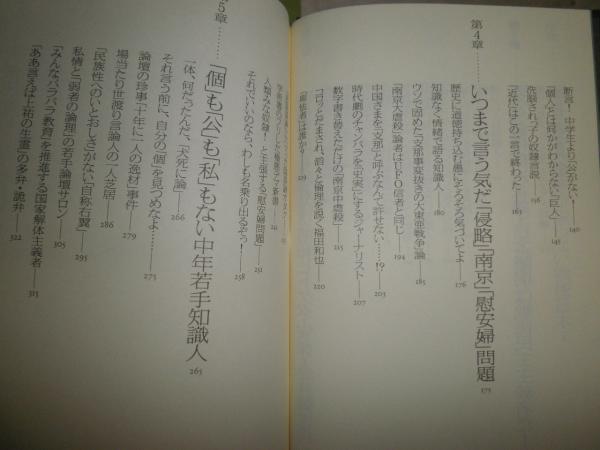 断言!中学生より「公がない!
「個人」とは何かがわからない「巨人」
140
145
洗脳された子の奴隷言説
156
「近代」はこの一言で終わった
165
第4章………いつまで言う気だ「侵略」「南京」「慰安婦」問題
175
歴史に道徳持ち込む愚にそろそろ気づいてよ
176
知識なく情緒で語る知識人
180
ウソで固めた「支那事変抜きの大東亜戦争」論
185
「南京大虐殺」論者はUFO信者と同じ
194
中国さまを「支那」と呼ぶなんて許せない……!?
203
時代劇のチャンバラを「史実」にするジャーナリスト
207
数字書き替えただけの「南京中虐殺」
215
コロッとだまされ、滔々と倫理を説く福田和也
220
人類みな奴隷!と主張する「慰安婦問題」
251
それでいいのなら、わしも名乗り出るぞっ!
258
5章………「個」も「公」も「私」もない中年若手知識人
265
一体、何だったんだ、「犬死に論」
266
それ言う前に、自分の「個」を見つめなよ……
275
論壇の珍事「十年に一人の逸材」事件
279
場当たり世渡り言論人の一人芝居
286
「民族性へのいとおしさ」がない「自称右翼」
295
私情と「弱者の論理」の若手論壇サロン
305
「みんなバラバラ教育」を推進する国家解体主義者
315
「ああ言えば上祐の生霊」の多弁・詭弁
322